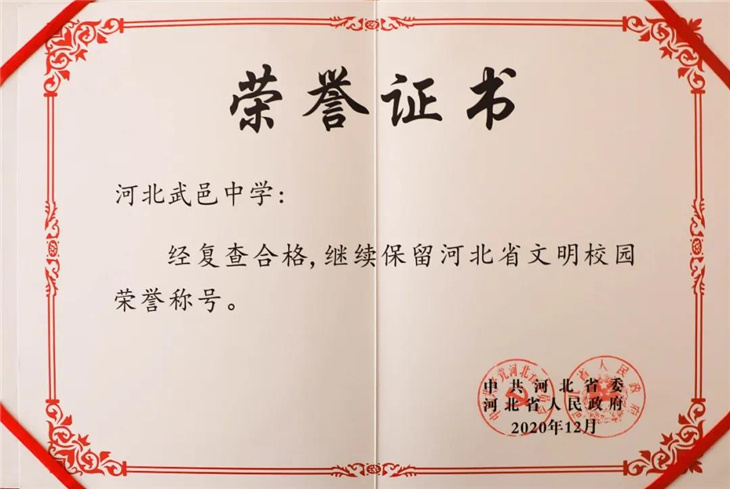 荣誉证书
河北武邑中学:
经复查合格,继续保留河北省文明校园
荣誉称号。
中共河北省委
河北省人民政府
2020年12月